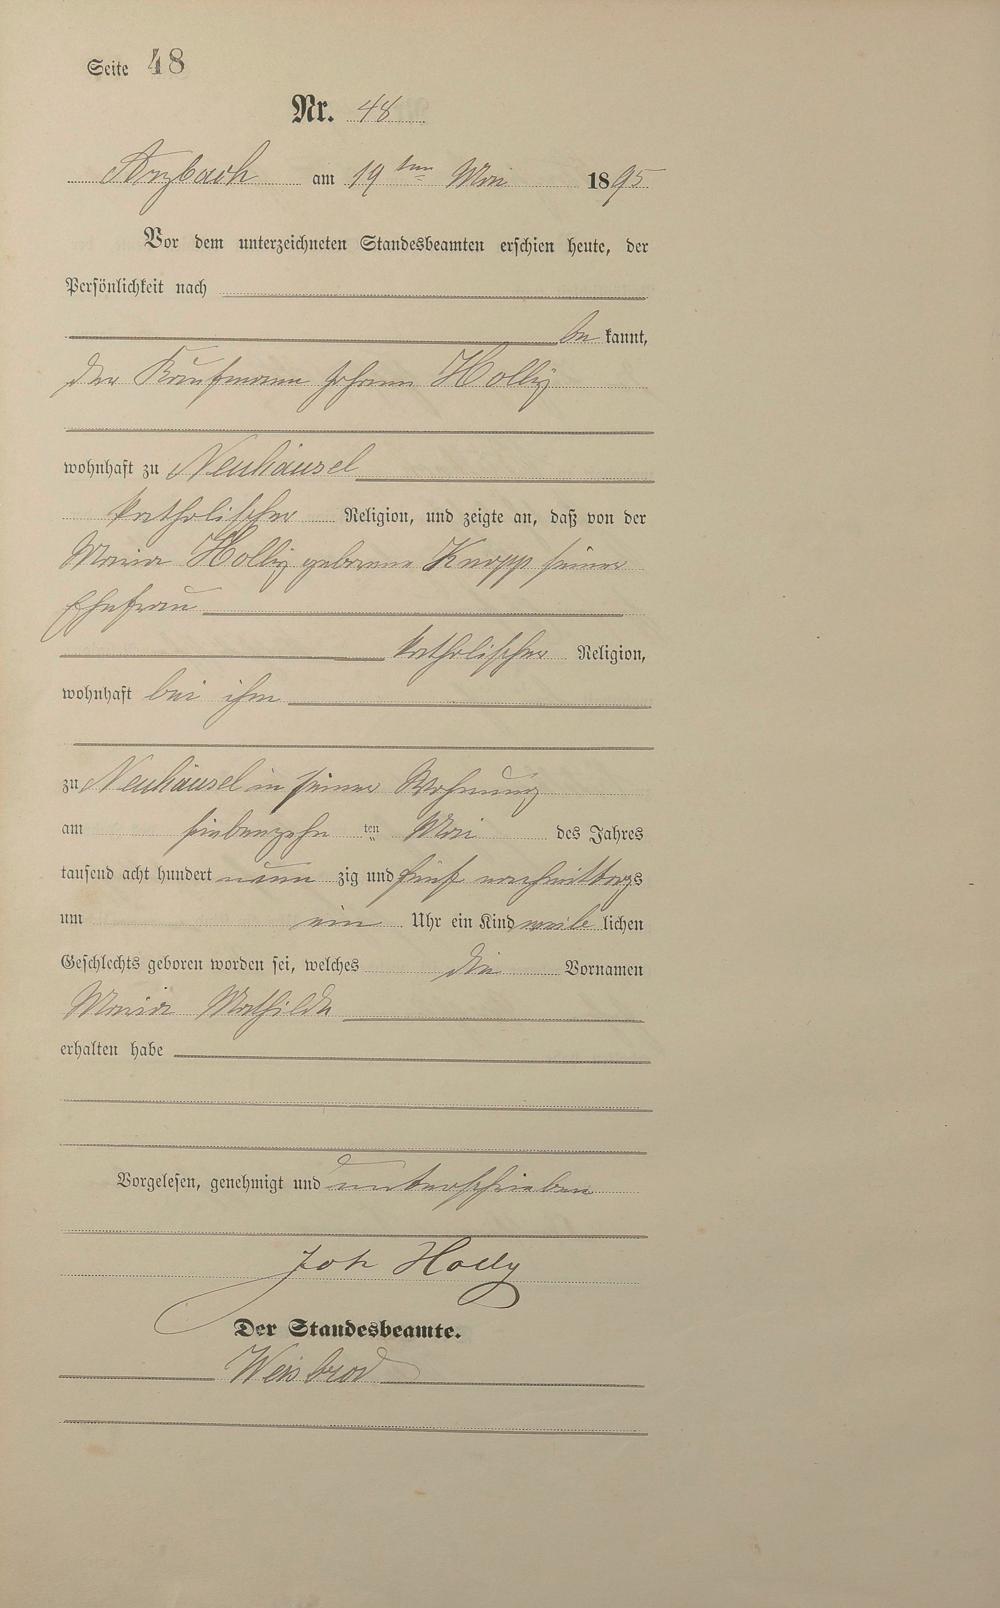 Seite 48
Nr. 48
Arzbach am 19ten Mai 1895
Vor dem unterzeichneten Standesbeamten erschien heute, der
Persönlichkeit nach
bekannt,
der Kaufmann Johann Holly
wohnhaft zu Neuhäusel
katholischer Religion, und zeigte an, daß von der
Maria Holly geborene Knopp seiner
Ehefrau
katholischer Religion,
wohnhaft bei ihm
zu Neuhäusel in seiner Wohnung
am siebenzehn ten Mai des Jahres
tausend acht hundert neun zig und fünf nachmittags
um ein Uhr ein Kind weiblichen
Geschlechts geboren worden sei, welches die Vornamen
Maria Mathilda
erhalten habe
Vorgelesen, genehmigt und unterschrieben
Joh Holly
Der Standesbeamte.
Weisbrod